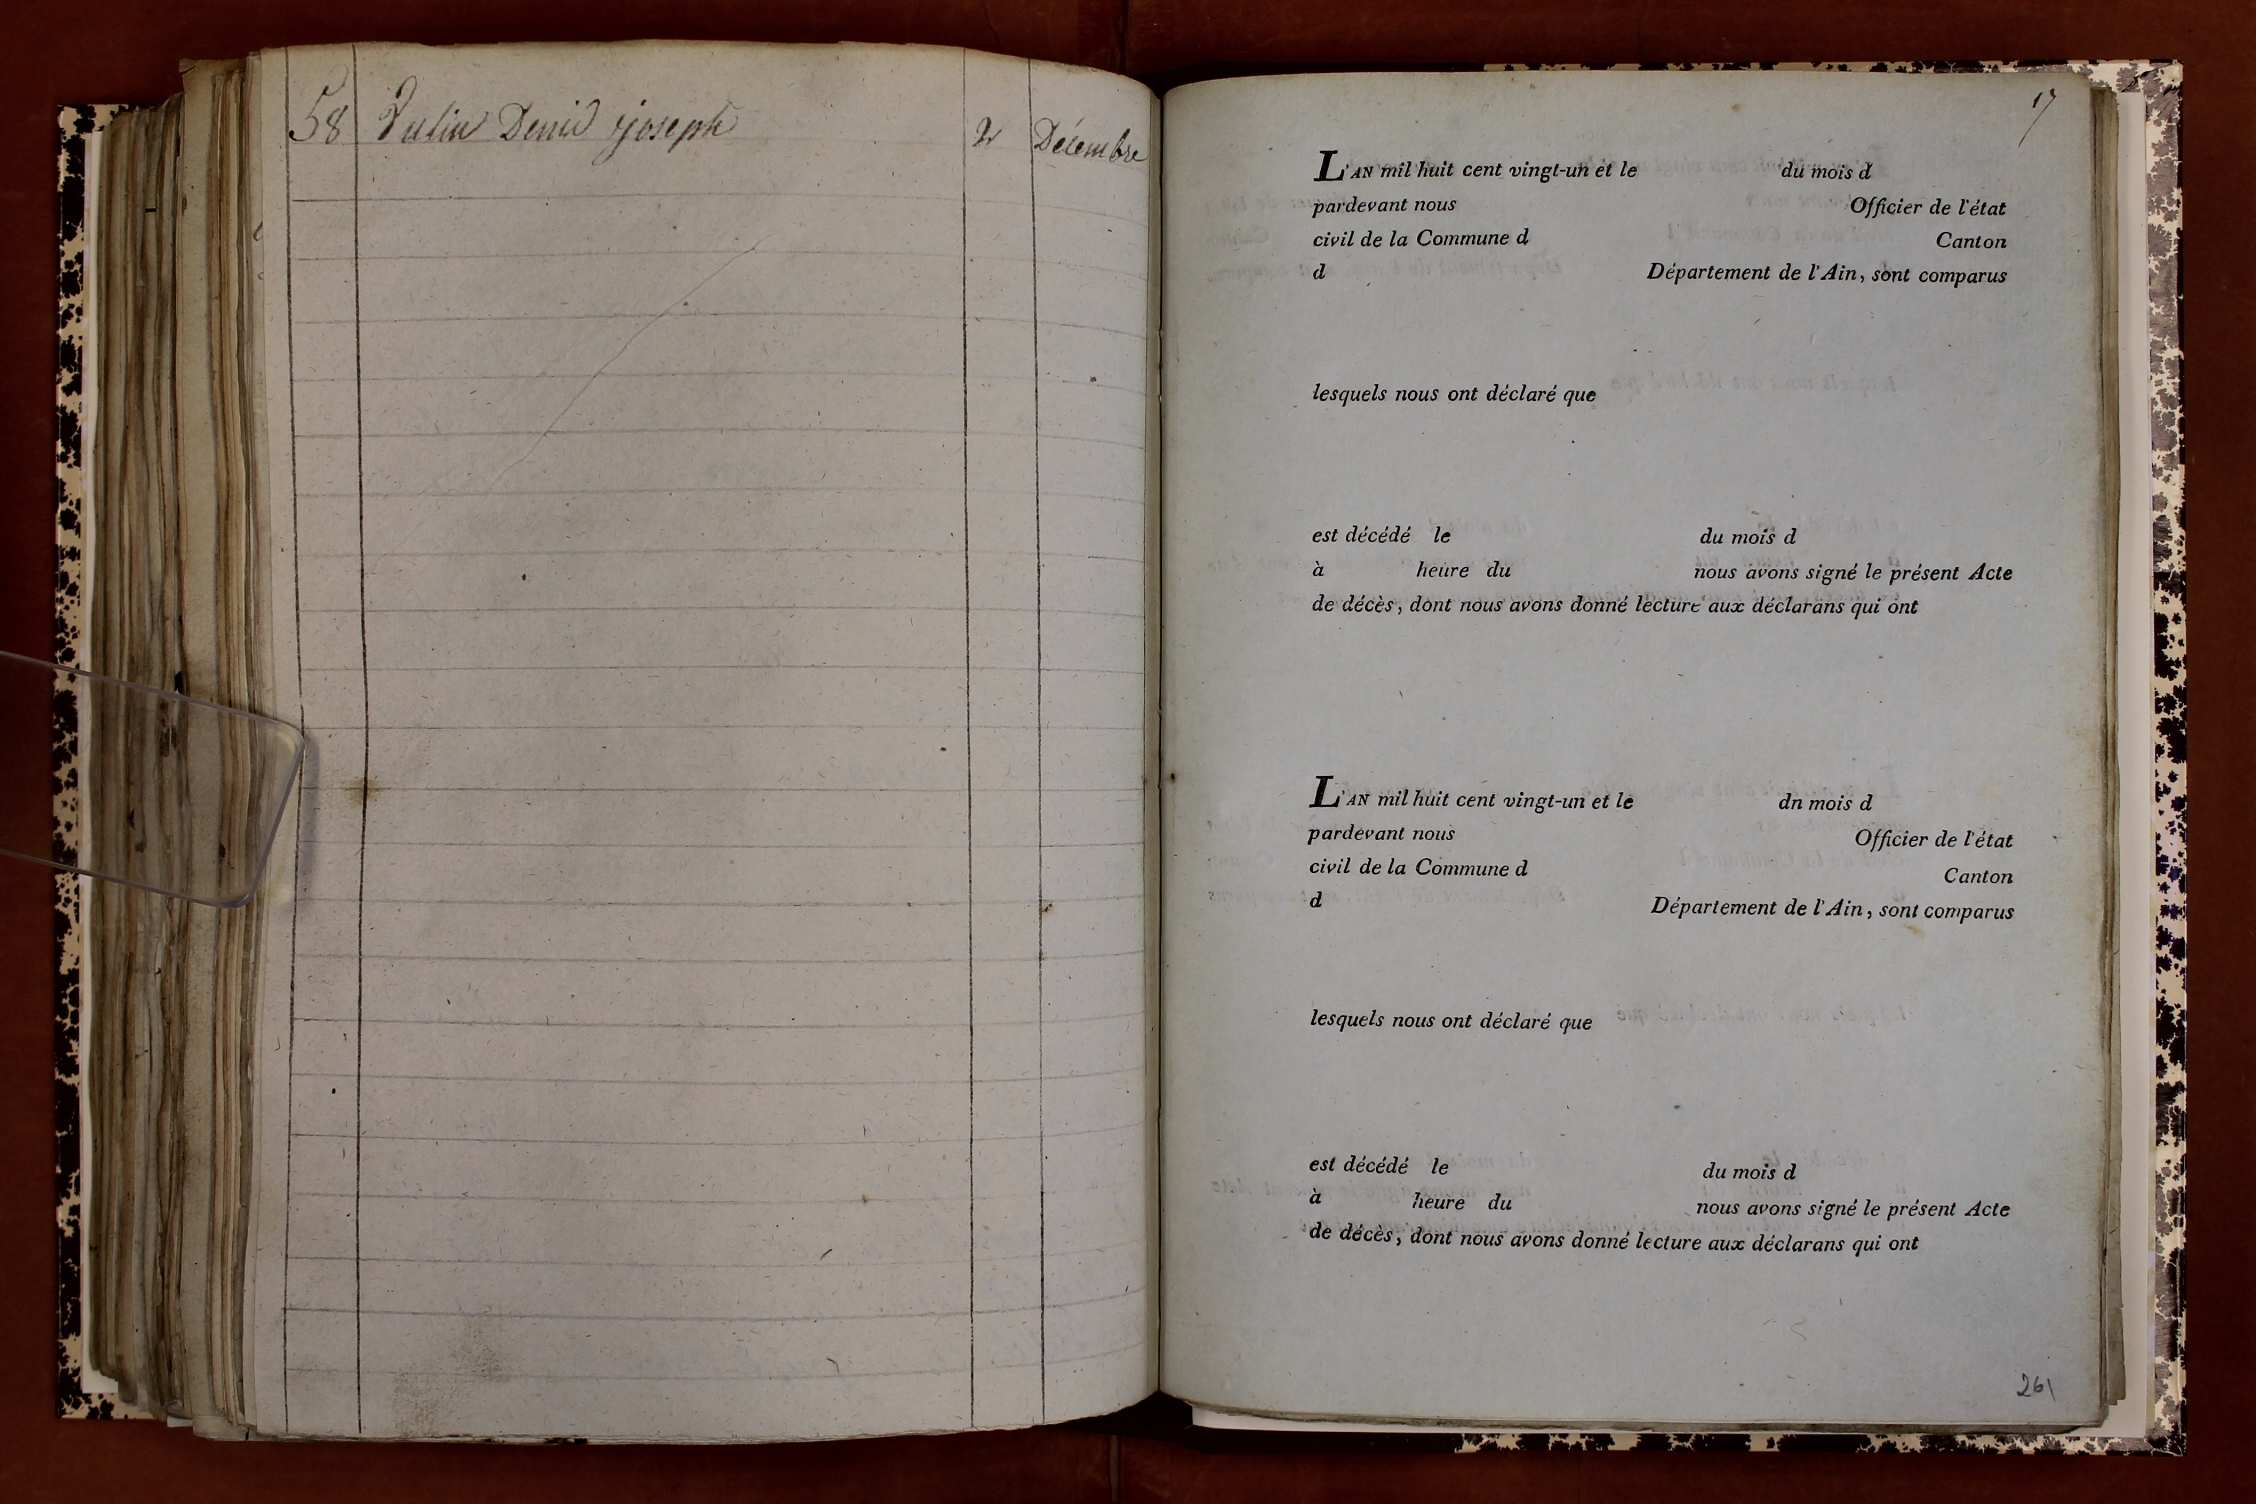 58 Vulin Denis joseph 2 Décembre
17
L'AN mil huit cent vingt-un et le du mois d
pardevant nous Officier de l'état
civil de la Commune d Canton
d Département de l'Ain, sont comparus
lesquels nous ont déclaré que
est décédé le du mois d
à heure du nous avons signé le présent Acte
de décès, dont nous avons donné lecture aux déclarans qui ont
L'AN mil huit cent vingt-un et le dn mois d
pardevant nous Officier de l'état
civil de la Commune d Canton
d Département de l'Ain, sont comparus
lesquels nous ont déclaré que
est décédé le du mois d
à heure du nous avons signé le présent Acte
de décès, dont nous avons donné lecture aux déclarans qui ont
261